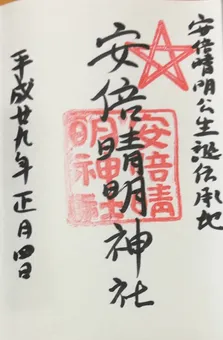 安倍晴明公生誕伝承地
安倍晴明神社
安倍晴明神社
平成廿九年正月四日